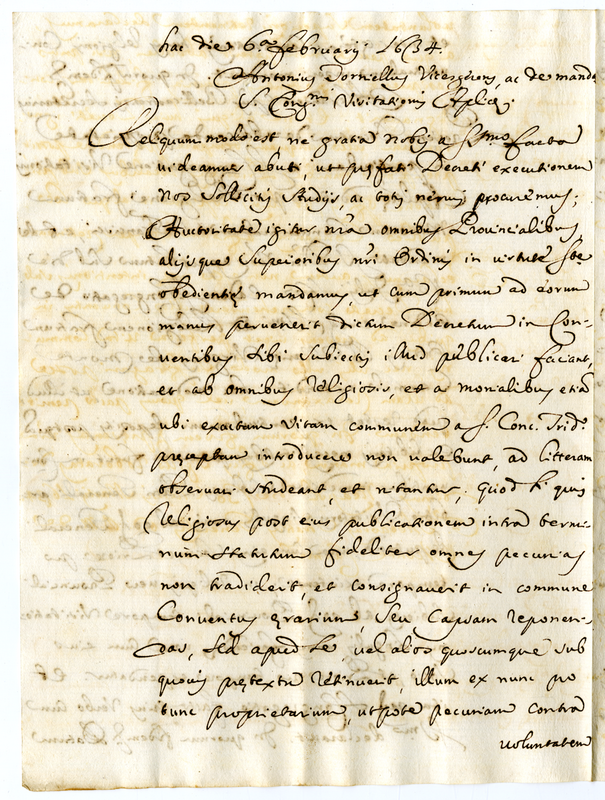 hac die 6.a februarij 1634.
Antonius Torniellus Vicesgerens, ac de manda
S. Cong.nis Visitationis Aplicę.
Reliquum modo est, ne gratia nobis a SS.mo facta
uideamur abuti, ut pręfati Decreti executionem
nos sollicitis studijs, ac totis neruis procuremus;
Auctoritate igitur nr̃a omnibus Prouincialibus
alijsque Superioribus nr̃i Ordinis in uirtute s.tę
obedientię mandamus, ut cum primum ad eorum
manus peruenerit, dictum Decretum in Con-
uentibus sibi subiectis illud publicari faciant,
et ab omnibus Religiosis, et a monialibus etiã
ubi exactam uitam communem a S. Conc. Trid.o
pręceptam introducere non ualebunt, ad litteram
obseruari studeant, et nitantur, quod si quis
Religiosus post eius publicationem intra termi-
num statutum fideliter omnes pecunias
non tradiderit, et consignauerit in commune
Conuentus ęrarium, seu Capsam reponen-
das, sed apud se, uel alios quoscumque sub
quouis prętextu retinuerit, illum ex nunc pro
tunc proprietarium, utpote pecuniam contra
uoluntatem